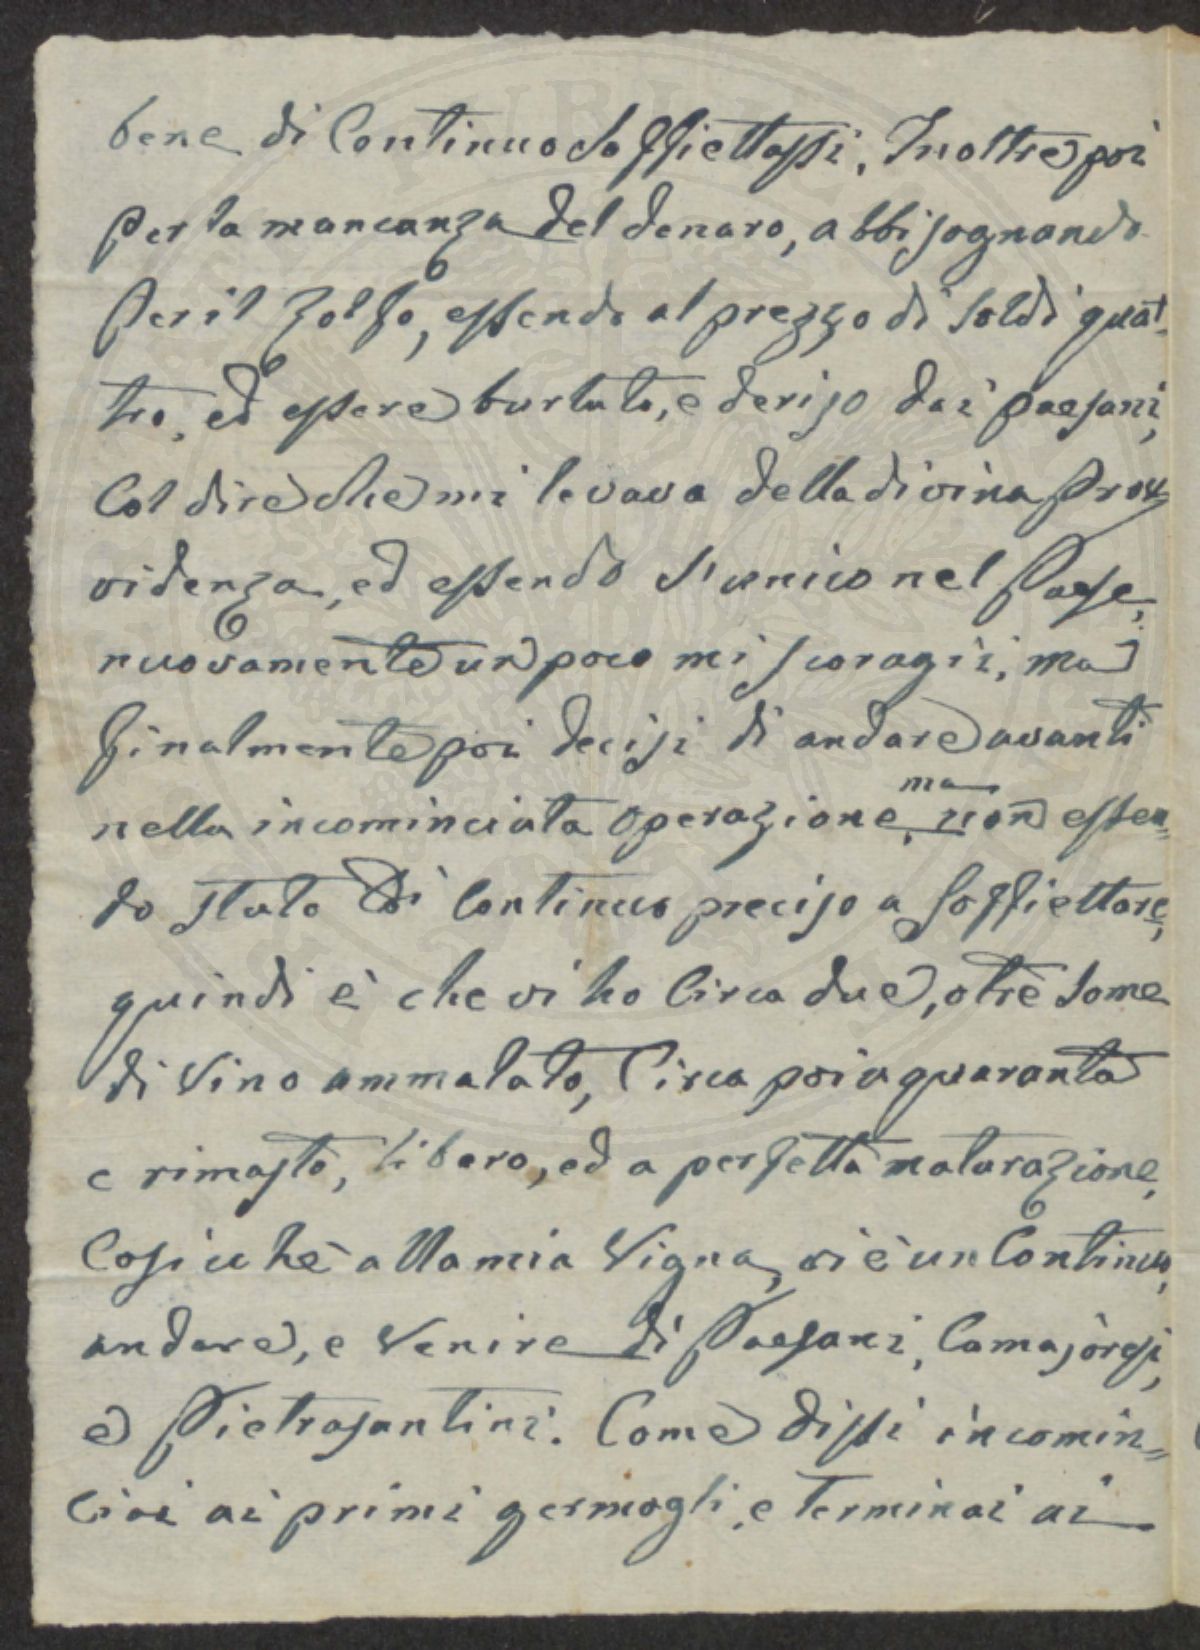 bene di Continuo Soffiettassi, Inoltre poi
Per la mancanza del denaro, abbisognando
Per il Zolfo, essendo al prezzo di Soldi quat-
tro, ed essere burlato, e deriso dai paesani,
Col dire che mi levava della divina Prov-
videnza, ed essendo l'unico nel Paese,
nuovamente un poco mi scoragii, ma
finalmente poi decisi di andare avanti
nella incominciata operazione, ma non essen=
do stato di Continuo preciso a Soffiettare,
quindi è che vi ho Circa due, o tre Some
di Vino ammalato, Circa poi a quaranta
e rimasto, libero, ed a perfetta maturazione,
Cosicchè alla mia Vigna, vi è un Continuo,
andare, e Venire di Paesani, Camajoresi,
e Pietrasantini. Come dissi incomin=
ciai ai primi germogli, e terminai ai